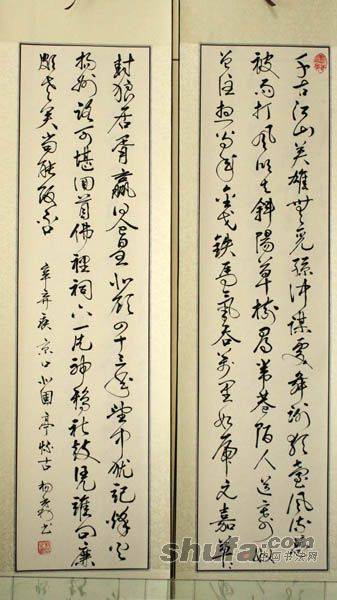 千古江山英雄無覓孫仲謀處舞榭歌臺風流總
被雨打風吹去斜陽草樹尋常巷陌人道寄奴
曾住想當年金戈鐵馬氣吞萬里如虎元嘉草草
封狼居胥贏得倉皇北顧四十三年望中猶記烽火
揚州路可堪回首佛狸祠下一片神鴉社鼓憑誰問廉
頗老矣尚能飯否
辛弃疾京口北固亭怀古 書
shufa.com
中国书法网